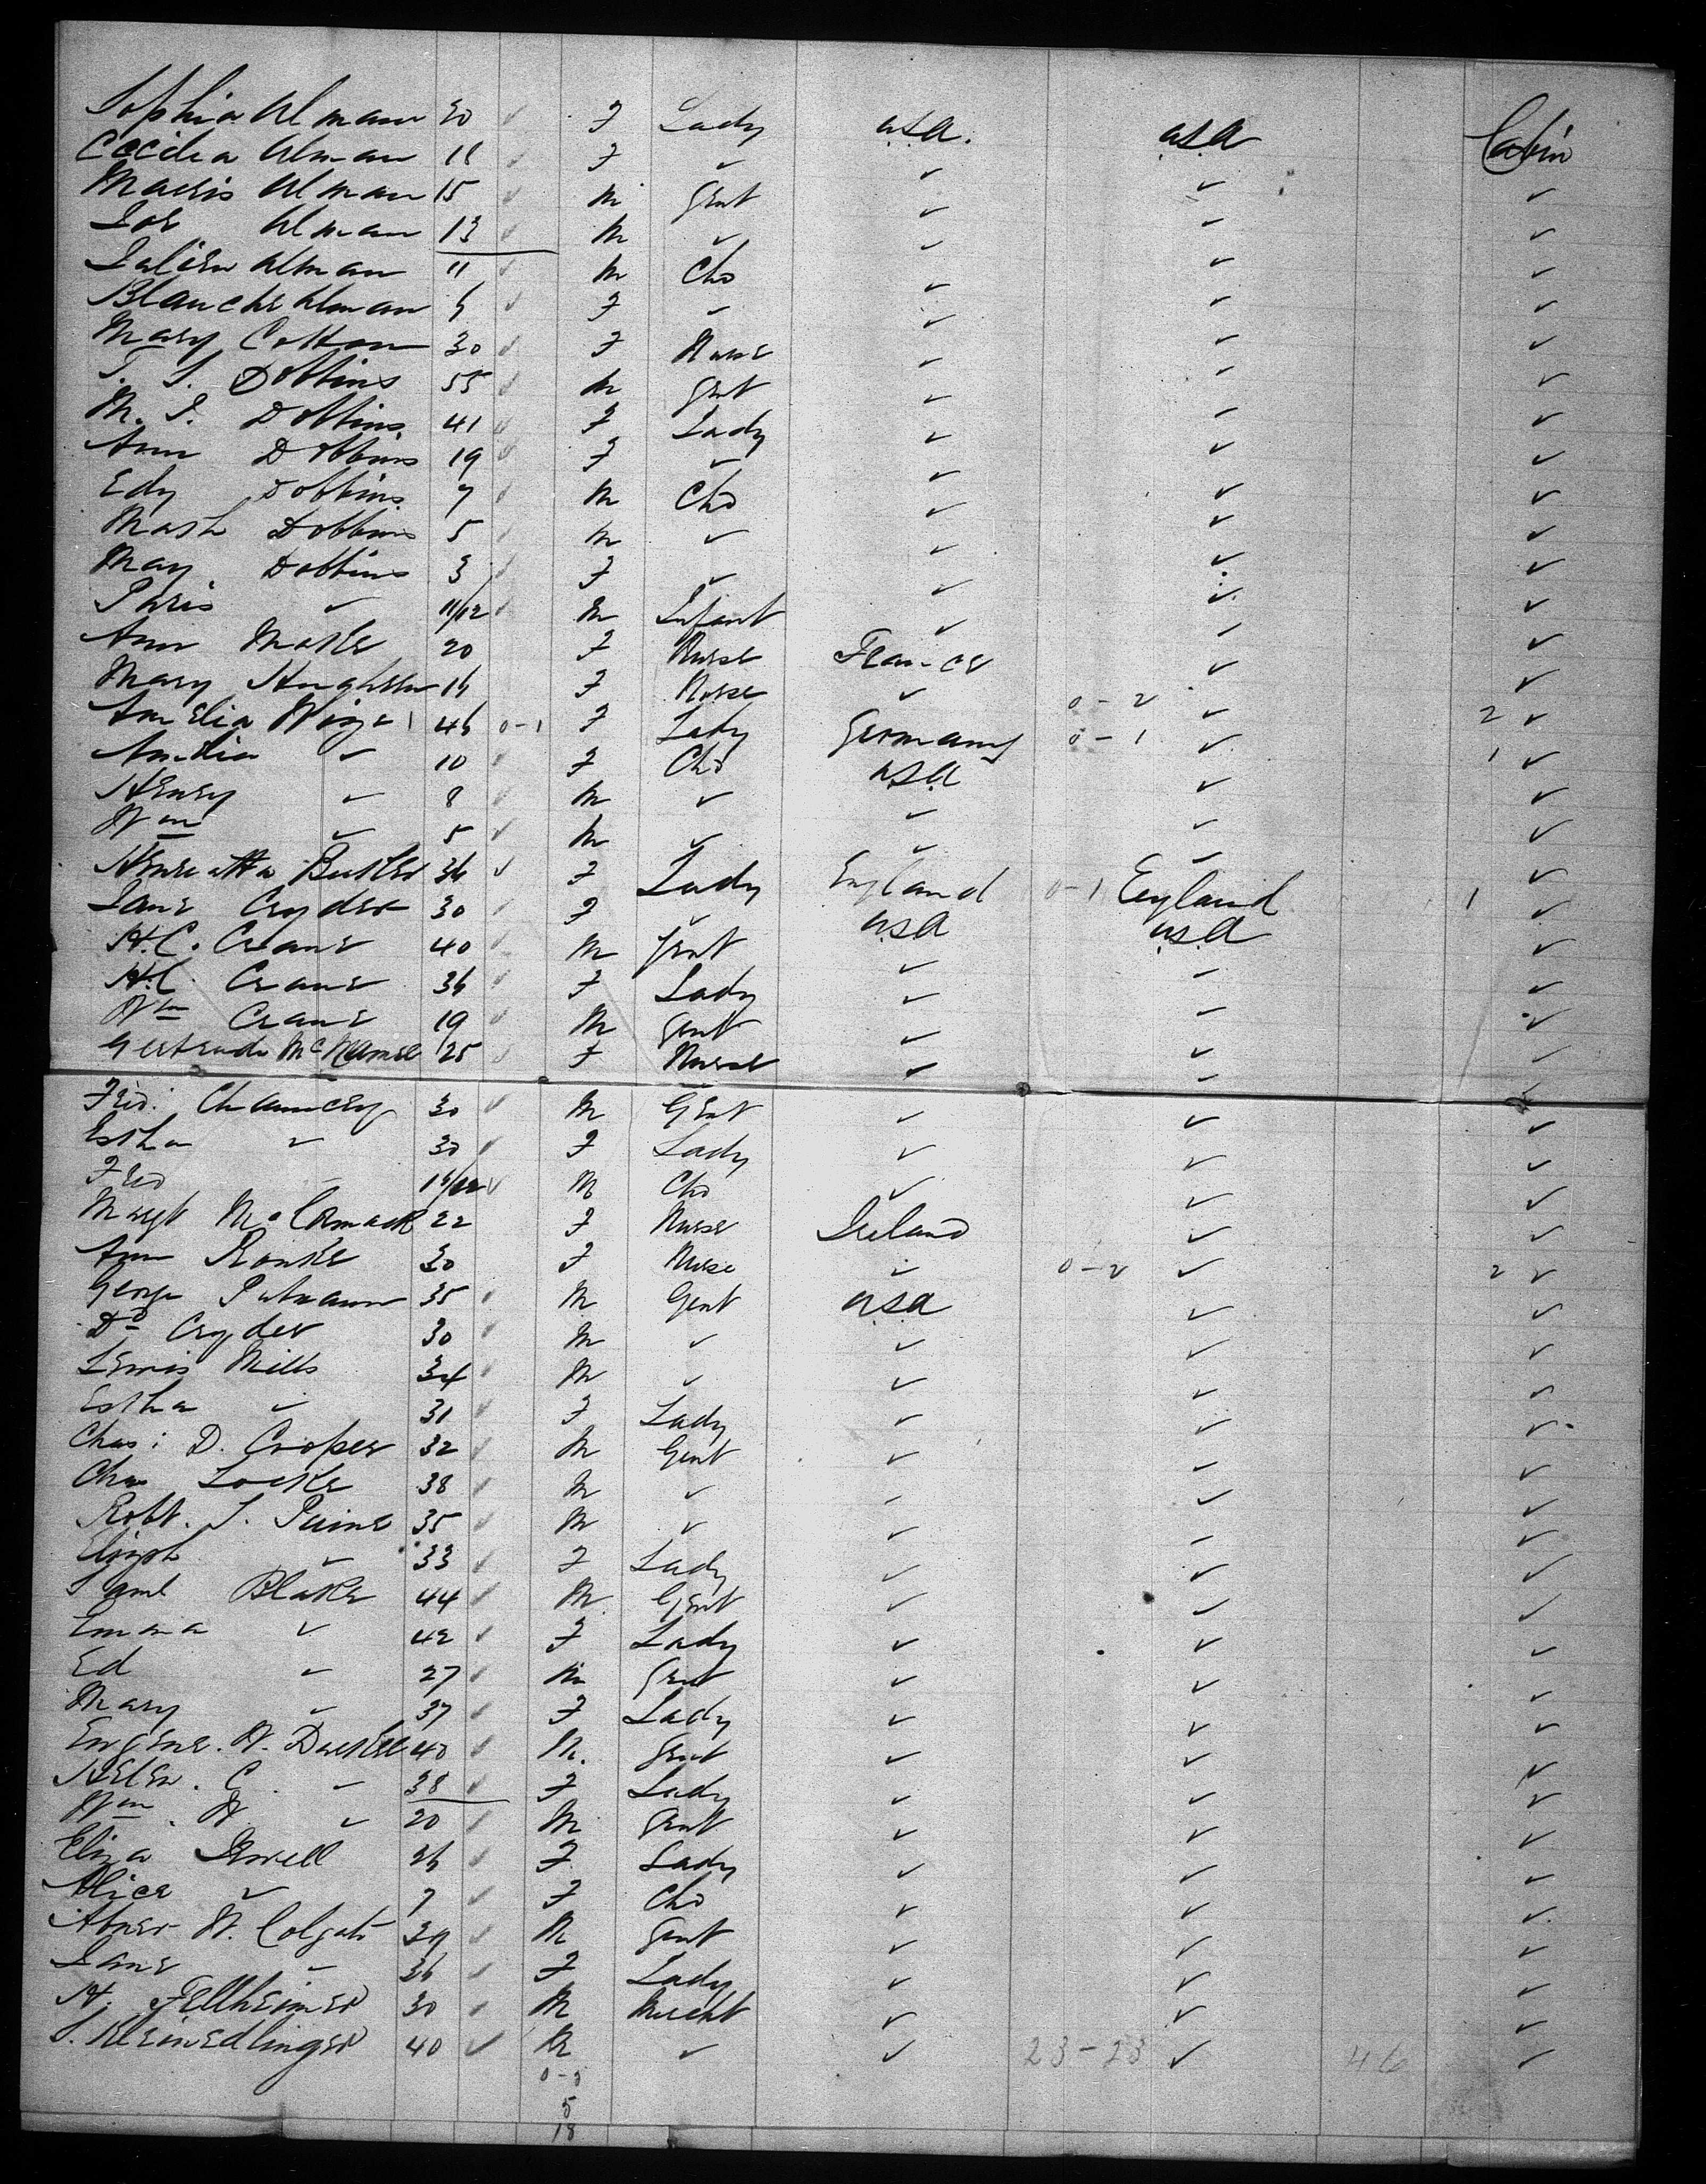 Sophia Ulman 20 ✓ F Lady U.S.A. U.S.A Cabin
Cecilia Ulman 18 ✓ F ✓ ✓ ✓ ✓
Ulman 15 ✓ M Gent ✓ ✓ ✓
Ulman 13 ✓ M ✓ ✓ ✓ ✓
Julien Ulman 11 ✓ M Chd ✓ ✓ ✓
Blanche Ulman ✓ F ✓ ✓ ✓ ✓
Mary Cotton 30 ✓ F Nurse ✓ ✓ ✓
Dobbins 55 ✓ M Gent ✓ ✓ ✓
Dobbins 41 ✓ F Lady ✓ ✓ ✓
Ann Dobbins 19 ✓ F ✓ ✓ ✓ ✓
Edy Dobbins 7 ✓ M Chd ✓ ✓ ✓
Dobbins 5 ✓ M ✓ ✓ ✓ ✓
May Dobbins 3 ✓ F ✓ ✓ ✓ ✓
Paris ✓ 11/12 ✓ M Infant ✓ ✓ ✓
Ann 20 F Nurse France ✓ ✓
Mary 16 F Nurse ✓ 0-2 ✓ 2 ✓
Amelia 46 0-1 F Lady Germany 0-1 ✓ 1 ✓
Amelia ✓ 10 ✓ F Chd USA ✓ ✓
Henry ✓ 8 ✓ M ✓ ✓ ✓ ✓
Wm ✓ 5 ✓ M ✓ ✓ ✓ ✓
Butler 36 ✓ F Lady England 0-1 England 1 ✓
Jane Cryder 30 ✓ F ✓ USA USA ✓
H.C. Crane 40 ✓ M Gent ✓ ✓ ✓
H.C. Crane 36 ✓ F Lady ✓ ✓ ✓
Wm Crane 19 ✓ M Gent ✓ ✓ ✓
Gertrude McNamee 25 ✓ F Nurse ✓ ✓ ✓
Fred: Chauncey 30 ✓ M Gent ✓ ✓ ✓
Estha ✓ 30 ✓ F Lady ✓ ✓ ✓
Fred ✓ M Chd ✓ ✓ ✓
Margt McCormack 22 F Nurse Ireland ✓ ✓
Ann 30 F Nurse ✓ 0-2 ✓ 2 ✓
George Putnam 35 ✓ M Gent USA ✓ ✓
Dd Cryder 30 ✓ M ✓ ✓ ✓ ✓
Lewis Mills 34 M ✓ ✓ ✓ ✓
Estha ✓ 31 ✓ F Lady ✓ ✓ ✓
Chas: D. Cooper 32 ✓ M Gent ✓ ✓ ✓
Chas Locke 38 ✓ M ✓ ✓ ✓ ✓
Robt. 35 ✓ M ✓ ✓ ✓ ✓
Elizbh ✓ 33 ✓ F Lady ✓ ✓ ✓
Saml Blake 44 ✓ M Gent ✓ ✓ ✓
Emma ✓ 42 ✓ F Lady ✓ ✓ ✓
Ed ✓ 27 ✓ M Gent ✓ ✓ ✓
Mary ✓ 37 ✓ F Lady ✓ ✓ ✓
Eugene. W. 40 ✓ M. Gent ✓ ✓ ✓
Helen. C. ✓ 38 ✓ F Lady ✓ ✓ ✓
Wm. W ✓ 20 ✓ M Gent ✓ ✓ ✓
Eliza Jewell 26 ✓ F Lady ✓ ✓ ✓
Alice ✓ 7 ✓ F Chd ✓ ✓ ✓
Abner W. Colgate 39 ✓ M Gent ✓ ✓ ✓
Jane ✓ 36 ✓ F Lady ✓ ✓ ✓
H. Fellheimer 30 ✓ M Mercht ✓ ✓ ✓
S. Kleinedlinger 40 ✓ M ✓ ✓ 23-23 ✓ 46 ✓
5
18